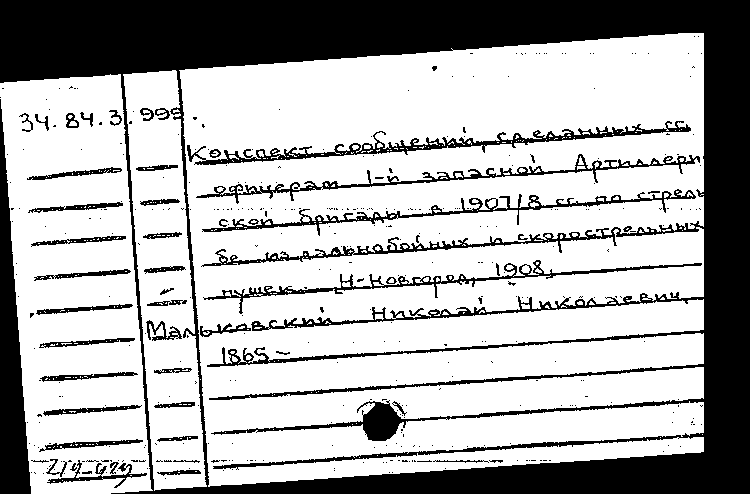 34.84.3.999.
Конспект сообщений, сделанных гг.
офицерам 1-й запасной Артиллерий
ской бригады в 1907/8 гг. по стрель
бе из дальнобойных и скорострельных
пушек. Н-Новгород, 1908,
Мальковский Николай Николаевич,
1865-